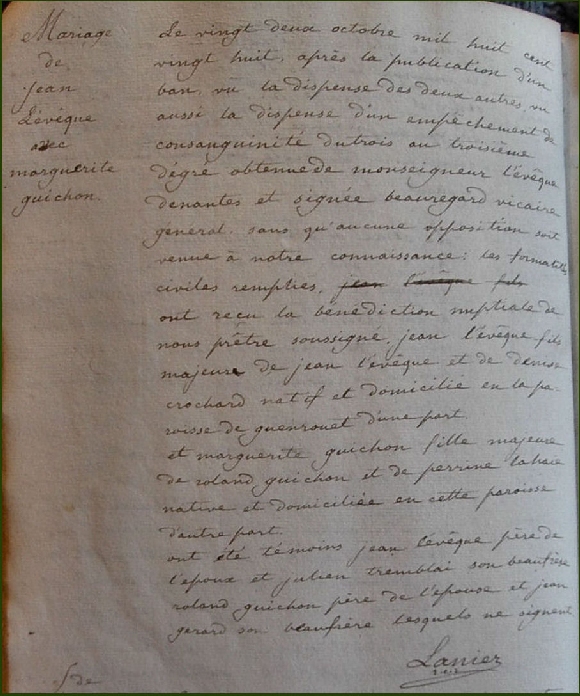 Mariage
de
jean
Lévêque
avec
marguerite
guichon.
Le vingt deux octobre mil huit cent
vingt huit, après la publication d'un
ban, vu la dispense des deux autres, vu
aussi la dispense d'un empêchement de
consanguinité dutrois au troisième
dégré obtenue de monseigneur l'évêque
denantes et signée beauregard vicaire
général. sans qu'aucune opposition soit
venue à notre connaissance; les formalités
civiles remplies, jean l'évêque fils
ont recu la bénédiction nuptiale de
nous prêtre soussigné, jean l'évêque fils
majeur de jean l'évêque et de
crochard natif et domicilié en la pa-
roisse de guenrouet d'une part
et marguerite guichon fille majeure
de roland guichon et de perrine lahaie
native et domiciliée en cette paroisse
d'autre part.
ont été témoins jean l'évêque père de
l'époux et julien tremblai son beaufrère
roland guichon père de l'épouse et jean
gerard son beaufrère lesquels ne signent
Lanier
de